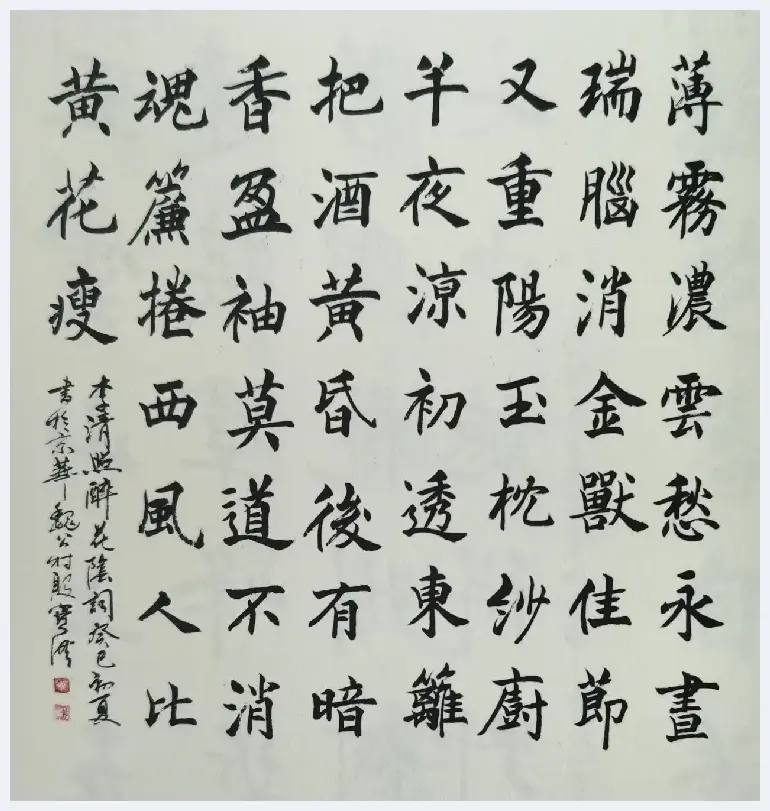 薄霧濃雲愁永晝
瑞腦消金獸佳節
又重陽玉枕紗廚
半夜涼初透東籬
把酒黄昏後有暗
香盈袖莫道不消
魂簾捲西風人比
黄花瘦
李清照醉花陰詞癸巳初夏
書於京華魏公村殷寶